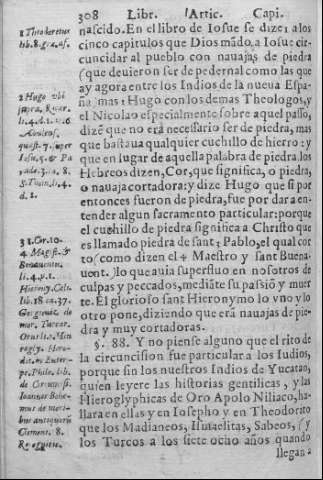 308 Libr. Artic. Capi.
nascido. En el libro de Iosue se dize 1 a los
cinco capitulos que Dios mãdo a Iosue circuncidar
al pueblo con nauajas de piedra
(que deuieron ser de pedernal como las que
ay agora entre los Indios de la nueua España,
mas 2 Hugo con los demas Theologos, y
el Nicolao especialmente sobre aquel passo,
dizẽ que no era necessario ser de piedra, mas
que bastaua qualquier cuchillo de hierro: y
que en lugar de aquella palabra de piedra los
Hebreos dizen, Cor, que significa, o piedra,
o nauaja cortadora: y dize Hugo que si por
entonces fueron de piedra, fue por dar a entender
algun sacramento particular: porque
el cuchillo de piedra significa a Christo que
es llamado piedra de sant 3 Pablo, el qual corto
(como dizen el 4 Maestro y sant Buenauent.)
lo que auia superfluo en nosotros de
culpas y peccados, mediãte su passiõ y muerte.
El glorioso sant Hieronymo lo vno y lo
otro pone, diziendo que erã nauajas de piedra
y muy cortadoras.
§. 88. Y no piense alguno que el rito de
la circuncision fue particular a los Iudios,
porque sin los nuestros Indios de Yucatan,
quien leyere las historias gentilicas, y las
Hieroglyphicas de Oro Apolo Niliaco, hallara
en ellas y en Iosepho y en Theodorito
que los Madianeos, Ismaelitas, Sabeos, (y
los Turcos a los siete ocho años quando
llegan a
1 Theodoretus
lib. 8.
2 Hugo vbi
supra,
3 1. Cor. 10.
4 Magist. &
Bonauentu.
li. 4.
Hierony.
lib. 18 ca. 37.
Pyerogly. Herodo.
in Euterpe,
Philo. lib.
de Circuncisi.
Ioannes Bohemus
de moribus
antiquorũ
Clement. 8.
Recognitio.